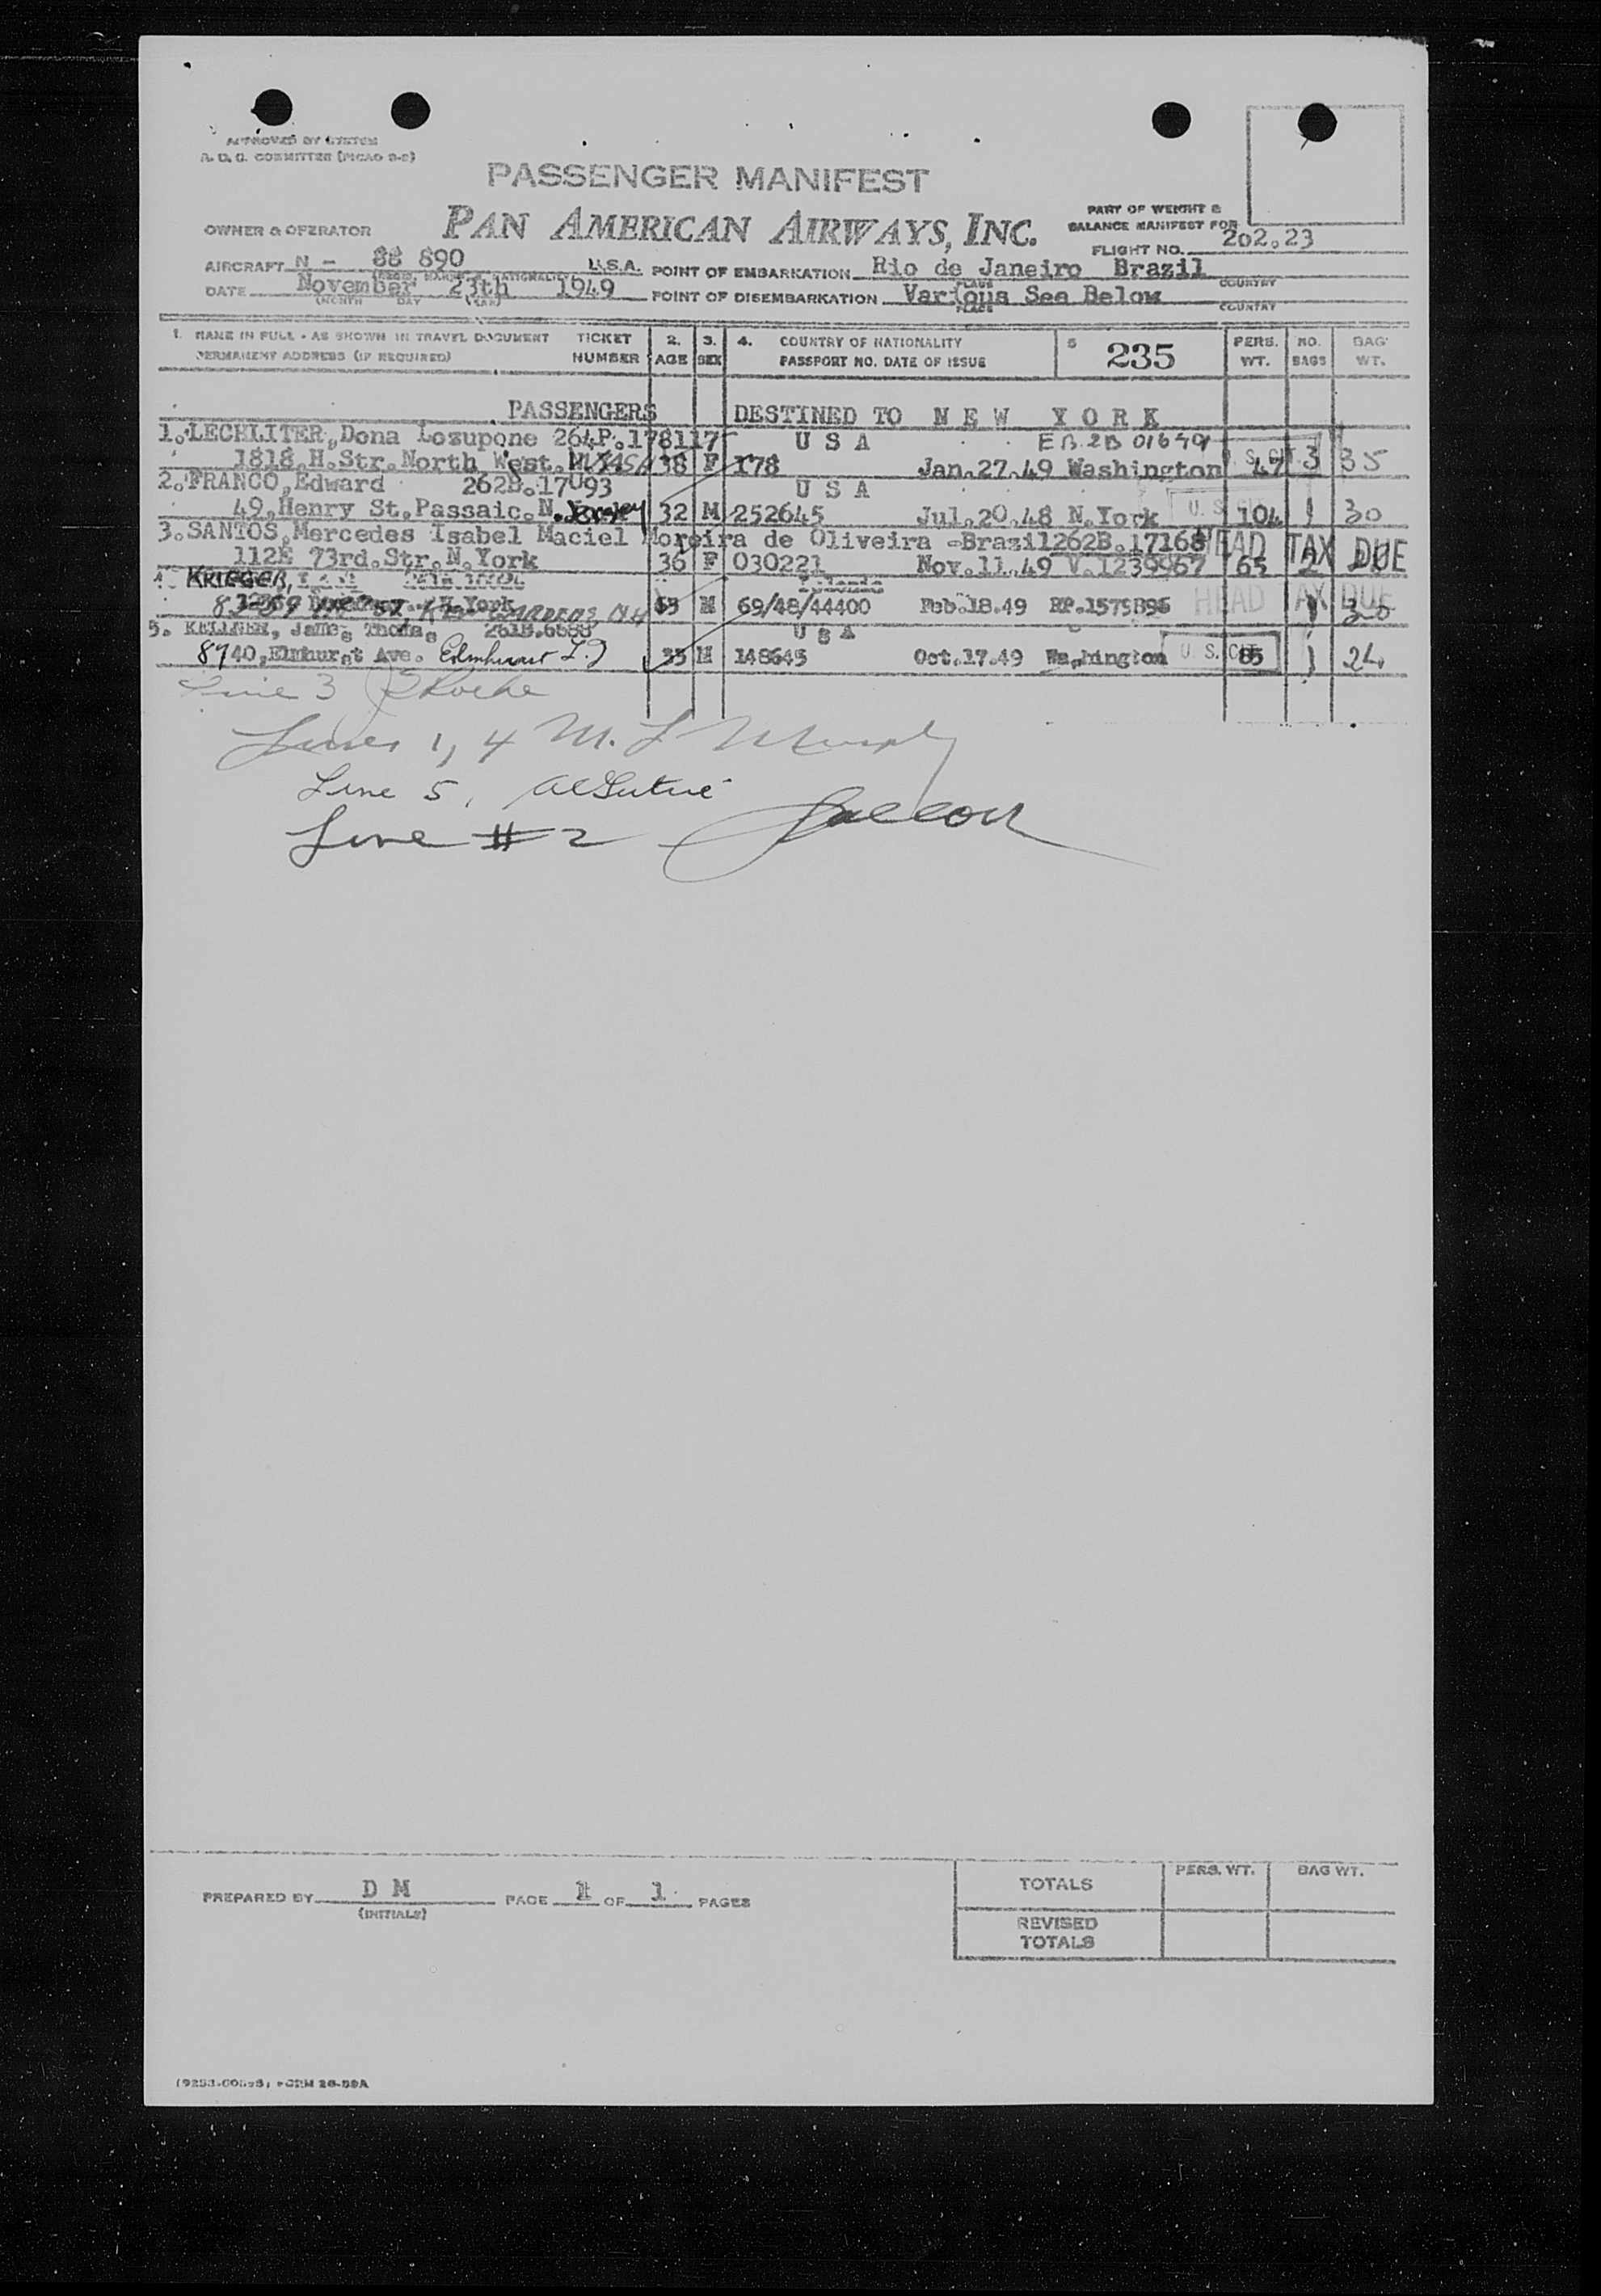 APPROVED BY SYSTEM
R. D. G. COMMITTEE (PICAO 9-2)
PASSENGER MANIFEST
PAN AMERICAN AIRWAYS, INC.
OWNER & OPERATOR
PART OF WEIGHT &
BALANCE MANIFEST FOR
FLIGHT NO. 202.23
AIRCRAFT N - 88 890 U.S.A. POINT OF EMBARKATION Rio de Janeiro Brazil
PLACE COUNTRY
DATE November 23th 1949 POINT OF DISEMBARKATION Various See Below
(MONTH DAY YEAR) PLACE COUNTRY
1. NAME IN FULL - AS SHOWN IN TRAVEL DOCUMENT TICKET 2. 3. 4. COUNTRY OF NATIONALITY 5 235 PERS. NO. BAG
PERMANENT ADDRESS (IF REQUIRED) NUMBER AGE SEX PASSPORT NO. DATE OF ISSUE WT. BAGS WT.
PASSENGERS DESTINED TO N E W Y O R K
1. LECHLITER, Dona Lozupone 264P.178117 U S A EB 2B 01679
1818.H.Str.North West. 38 F 178 Jan.27.49 Washington U. S. CIT. 47 3 35
2. FRANCO, Edward 262B.17093 U S A
49,Henry St.Passaic.N. Jersey 32 M 252645 Jul.20.48 N.York U. S. 104 1 30
3. SANTOS, Mercedes Isabel Maciel Moreira de Oliveira -Brazil262B.17168 HEAD TAX DUE
112E 73rd.Str.N.York 36 F 030221 Nov.11.49 V.1239967 65 2
4. KRIEGER,
N.York M 69/48/44400 Feb.18.49 RP.1579896 HEAD TAX DUE 1
5. KELLNER, James Thomas 261B.6688 U S A
8740,Elmhurst Ave. Elmhurst L.I 35 M 148645 Oct.17.49 Washington U. S. CIT. 85 1 24
Line 3 Roche
Lines 1, 4 M. L Murphy
Line 5,
Line # 2
PREPARED BY D M PAGE 1 OF 1. PAGES
(INITIALS)
TOTALS PERS. WT. BAG WT.
REVISED
TOTALS